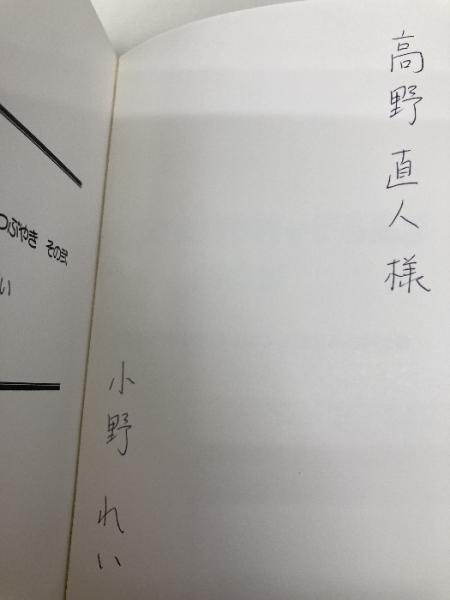 高野 直人 様
小野 れい
つぶやき その弐
い